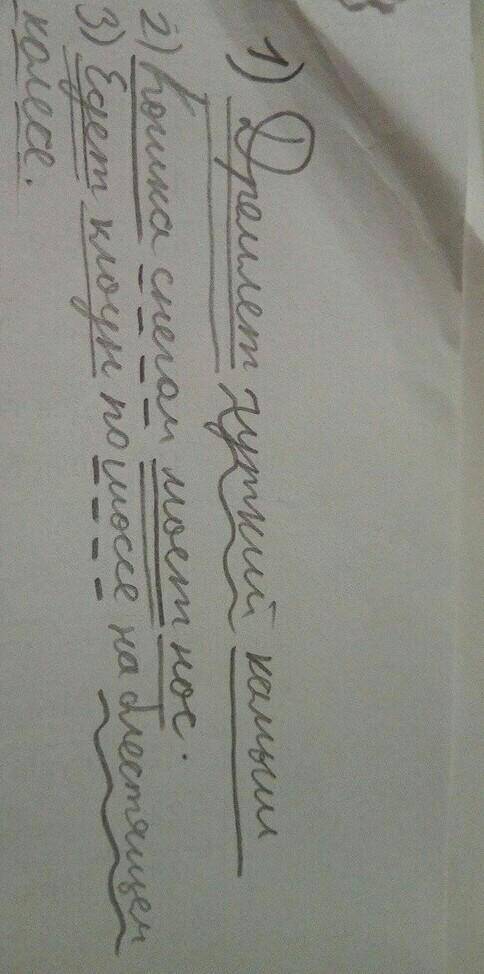 1) Дремлет чуткий камыш
2) Кошка снегом моет нос.
3) Едет клоун по шоссе на блестящем
колесе.